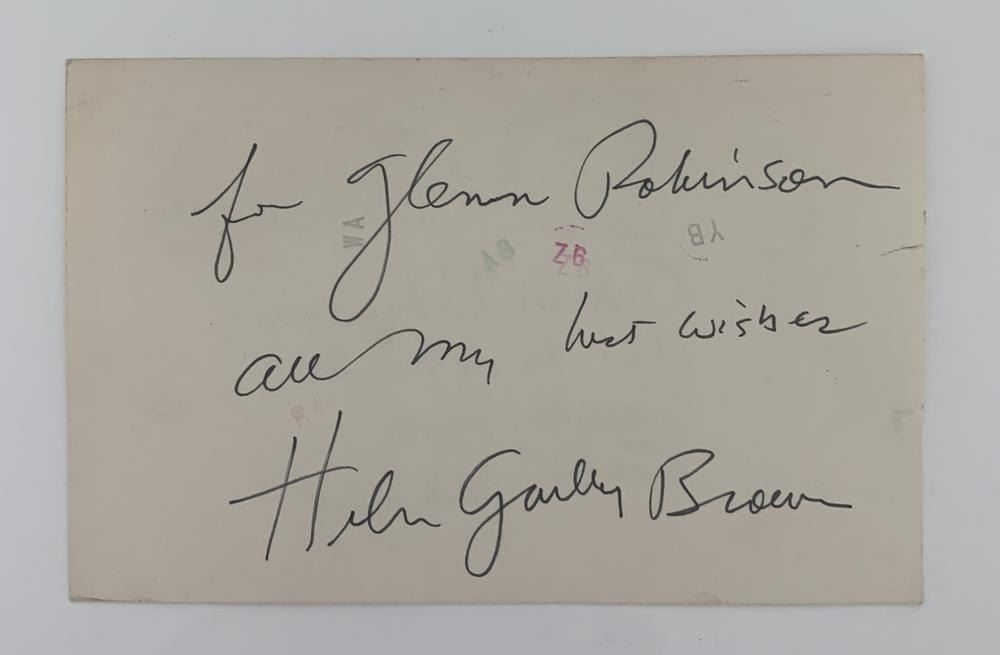 for Glenn Robinson
WA
AB
Z6
YB
all my best wishes
Helen Gurley Brown